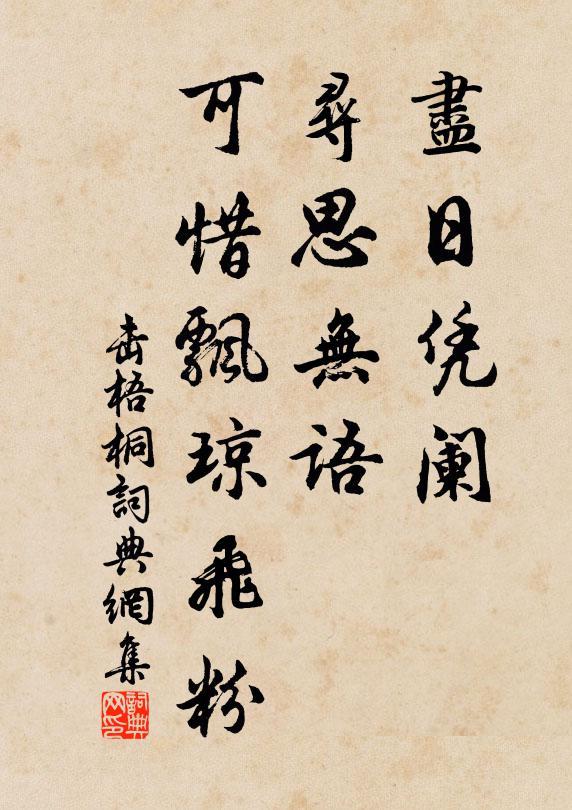 盡日凭阑
尋思無語
可惜飄琼飛粉
击梧桐詞典網集
詞典网印